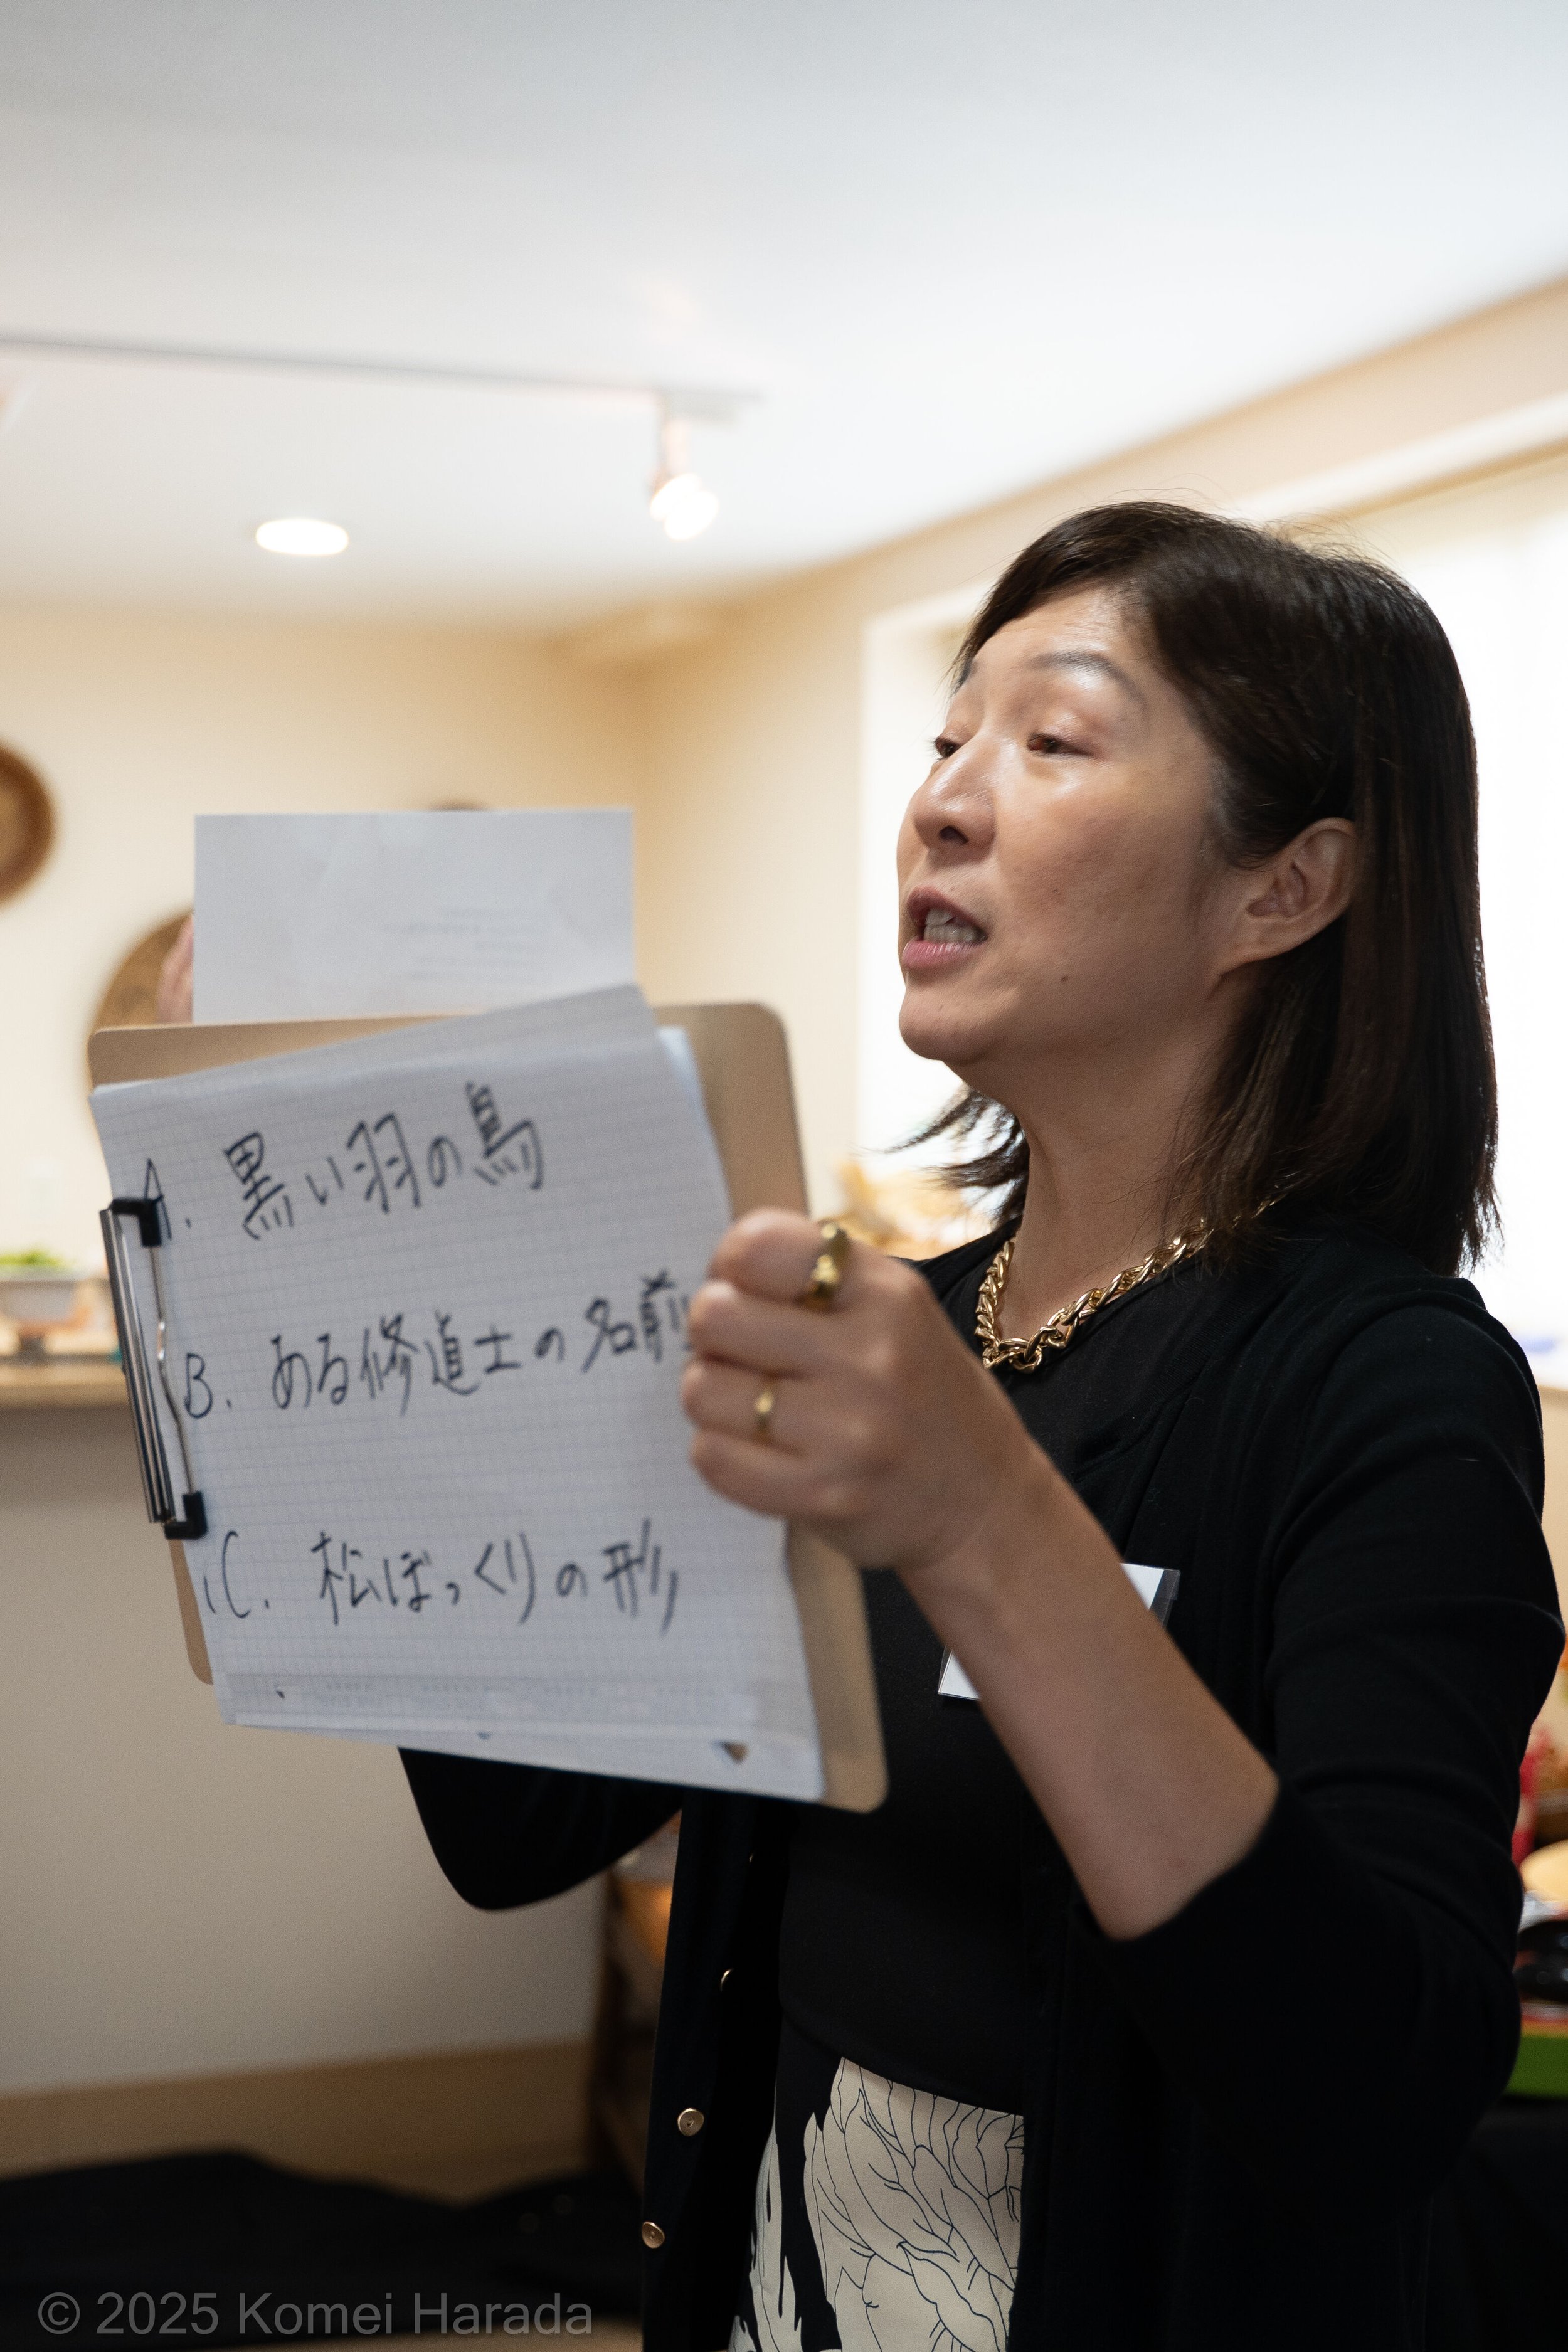 A. 黒い羽の鳥
B. ある修道士の名前
C. 松ぼっくりの形
© 2025 Komei Harada